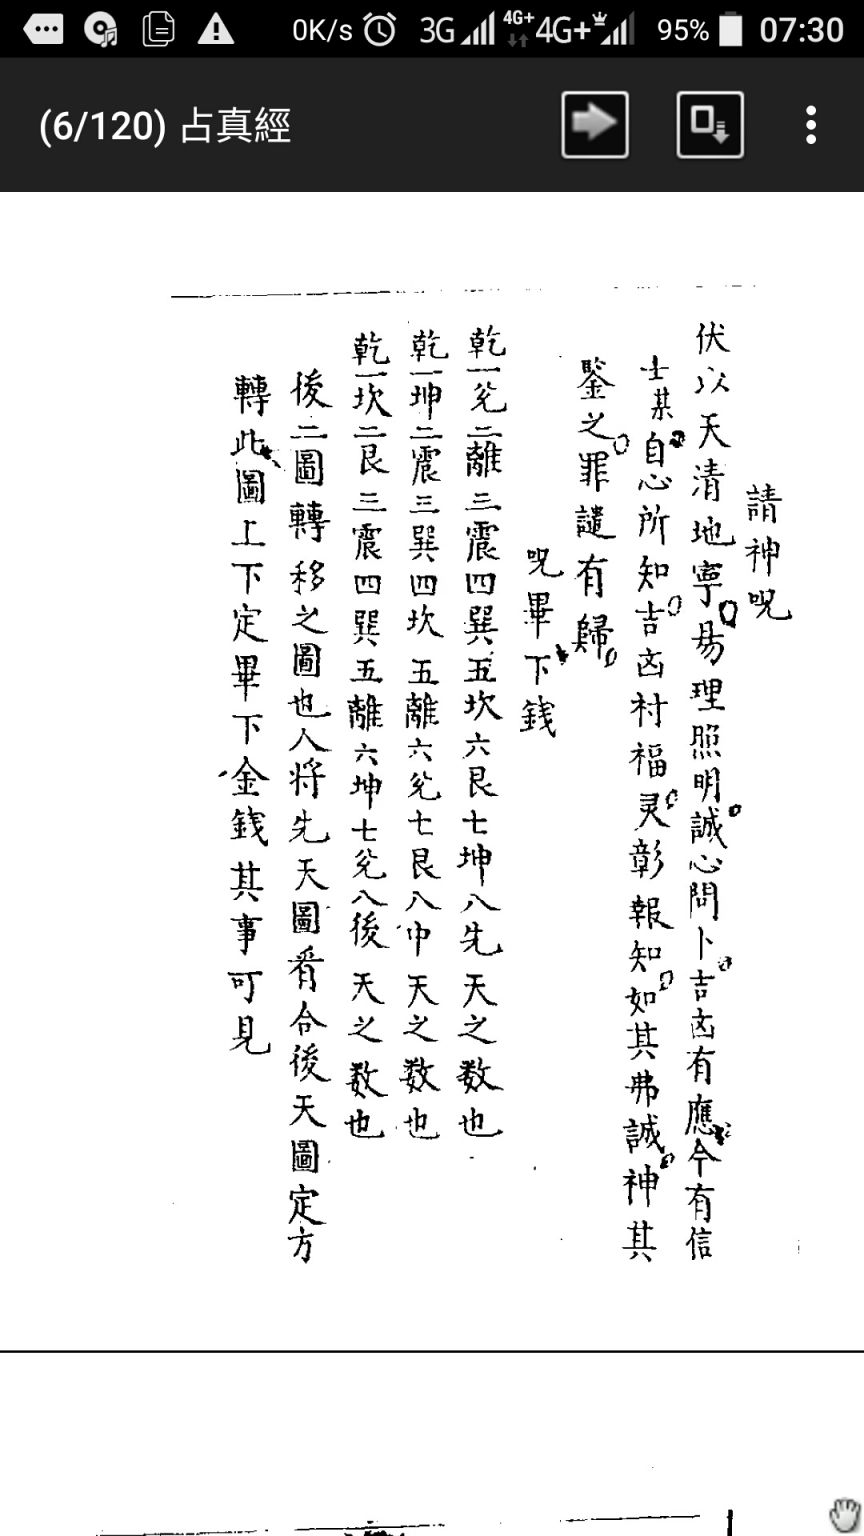 0K/s 3G 4G+ 4G+ 95% 07:30
(6/120) 占真經
請神呪
伏以天清地寧易理照明誠心問卜吉凶有應今有信
士某自心所知吉凶村福灵彰報知如其弗誠神其
鑒之罪譴有歸
呪畢下錢
乾一兌二離三震四巽五坎六艮七坤八先天之数也
乾一坤二震三巽四坎五離六兌七艮八中天之数也
乾一坎二艮三震四巽五離六坤七兌八後天之数也
後二圖轉移之圖也人將先天圖看合後天圖定方
轉此圖上下定畢下金錢其事可見